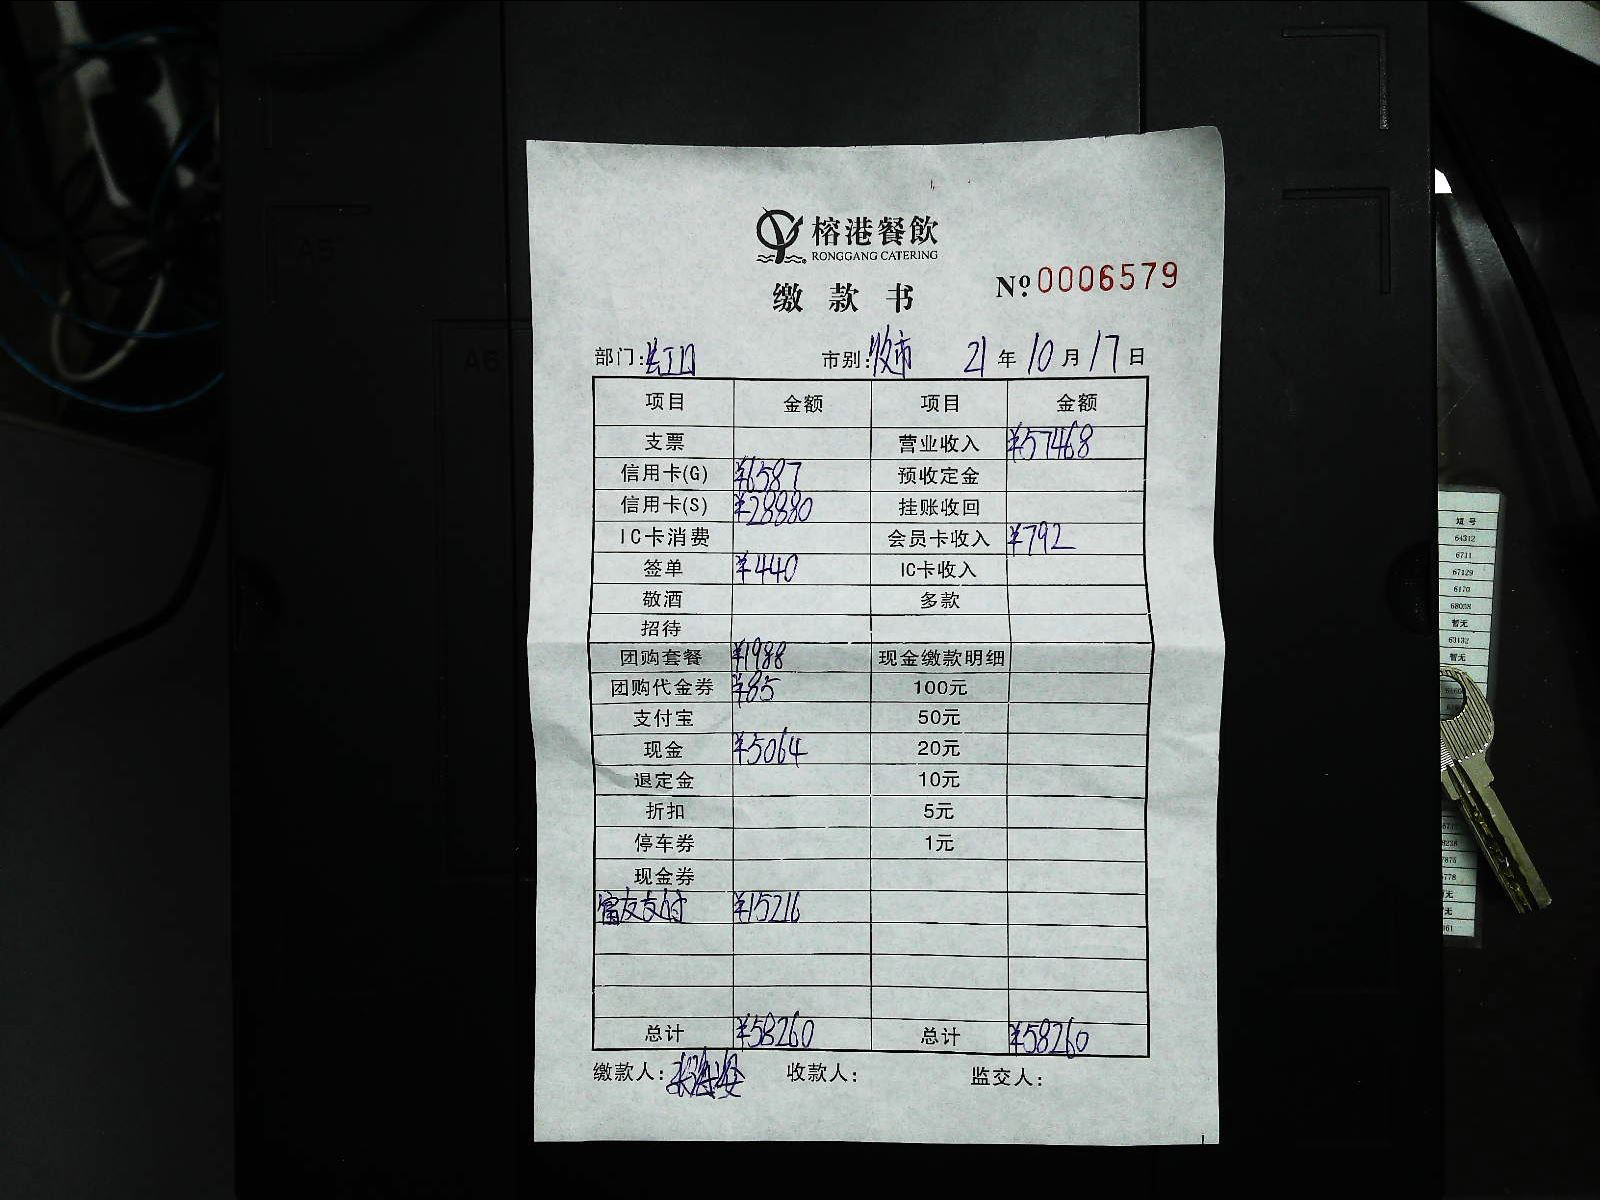 榕港餐飲
RONGGANG CATERING
缴款书 №0006579
部门:长江口 市别:收市 21年10月17日
项目 金额 项目 金额
支票 营业收入 ¥57468
信用卡(G) ¥6587 预收定金
信用卡(S) ¥28880 挂账收回
IC卡消费 会员卡收入 ¥792
签单 ¥440 IC卡收入
敬酒 多款
招待
团购套餐 ¥1988 现金缴款明细
团购代金券 ¥85 100元
支付宝 50元
现金 ¥5064 20元
退定金 10元
折扣 5元
停车券 1元
现金券
富友支付 ¥15216
总计 ¥58260 总计 ¥58260
缴款人: 收款人: 监交人:
A5
A6
短号
64312
6711
67129
6170
68058
暂无
63132
暂无